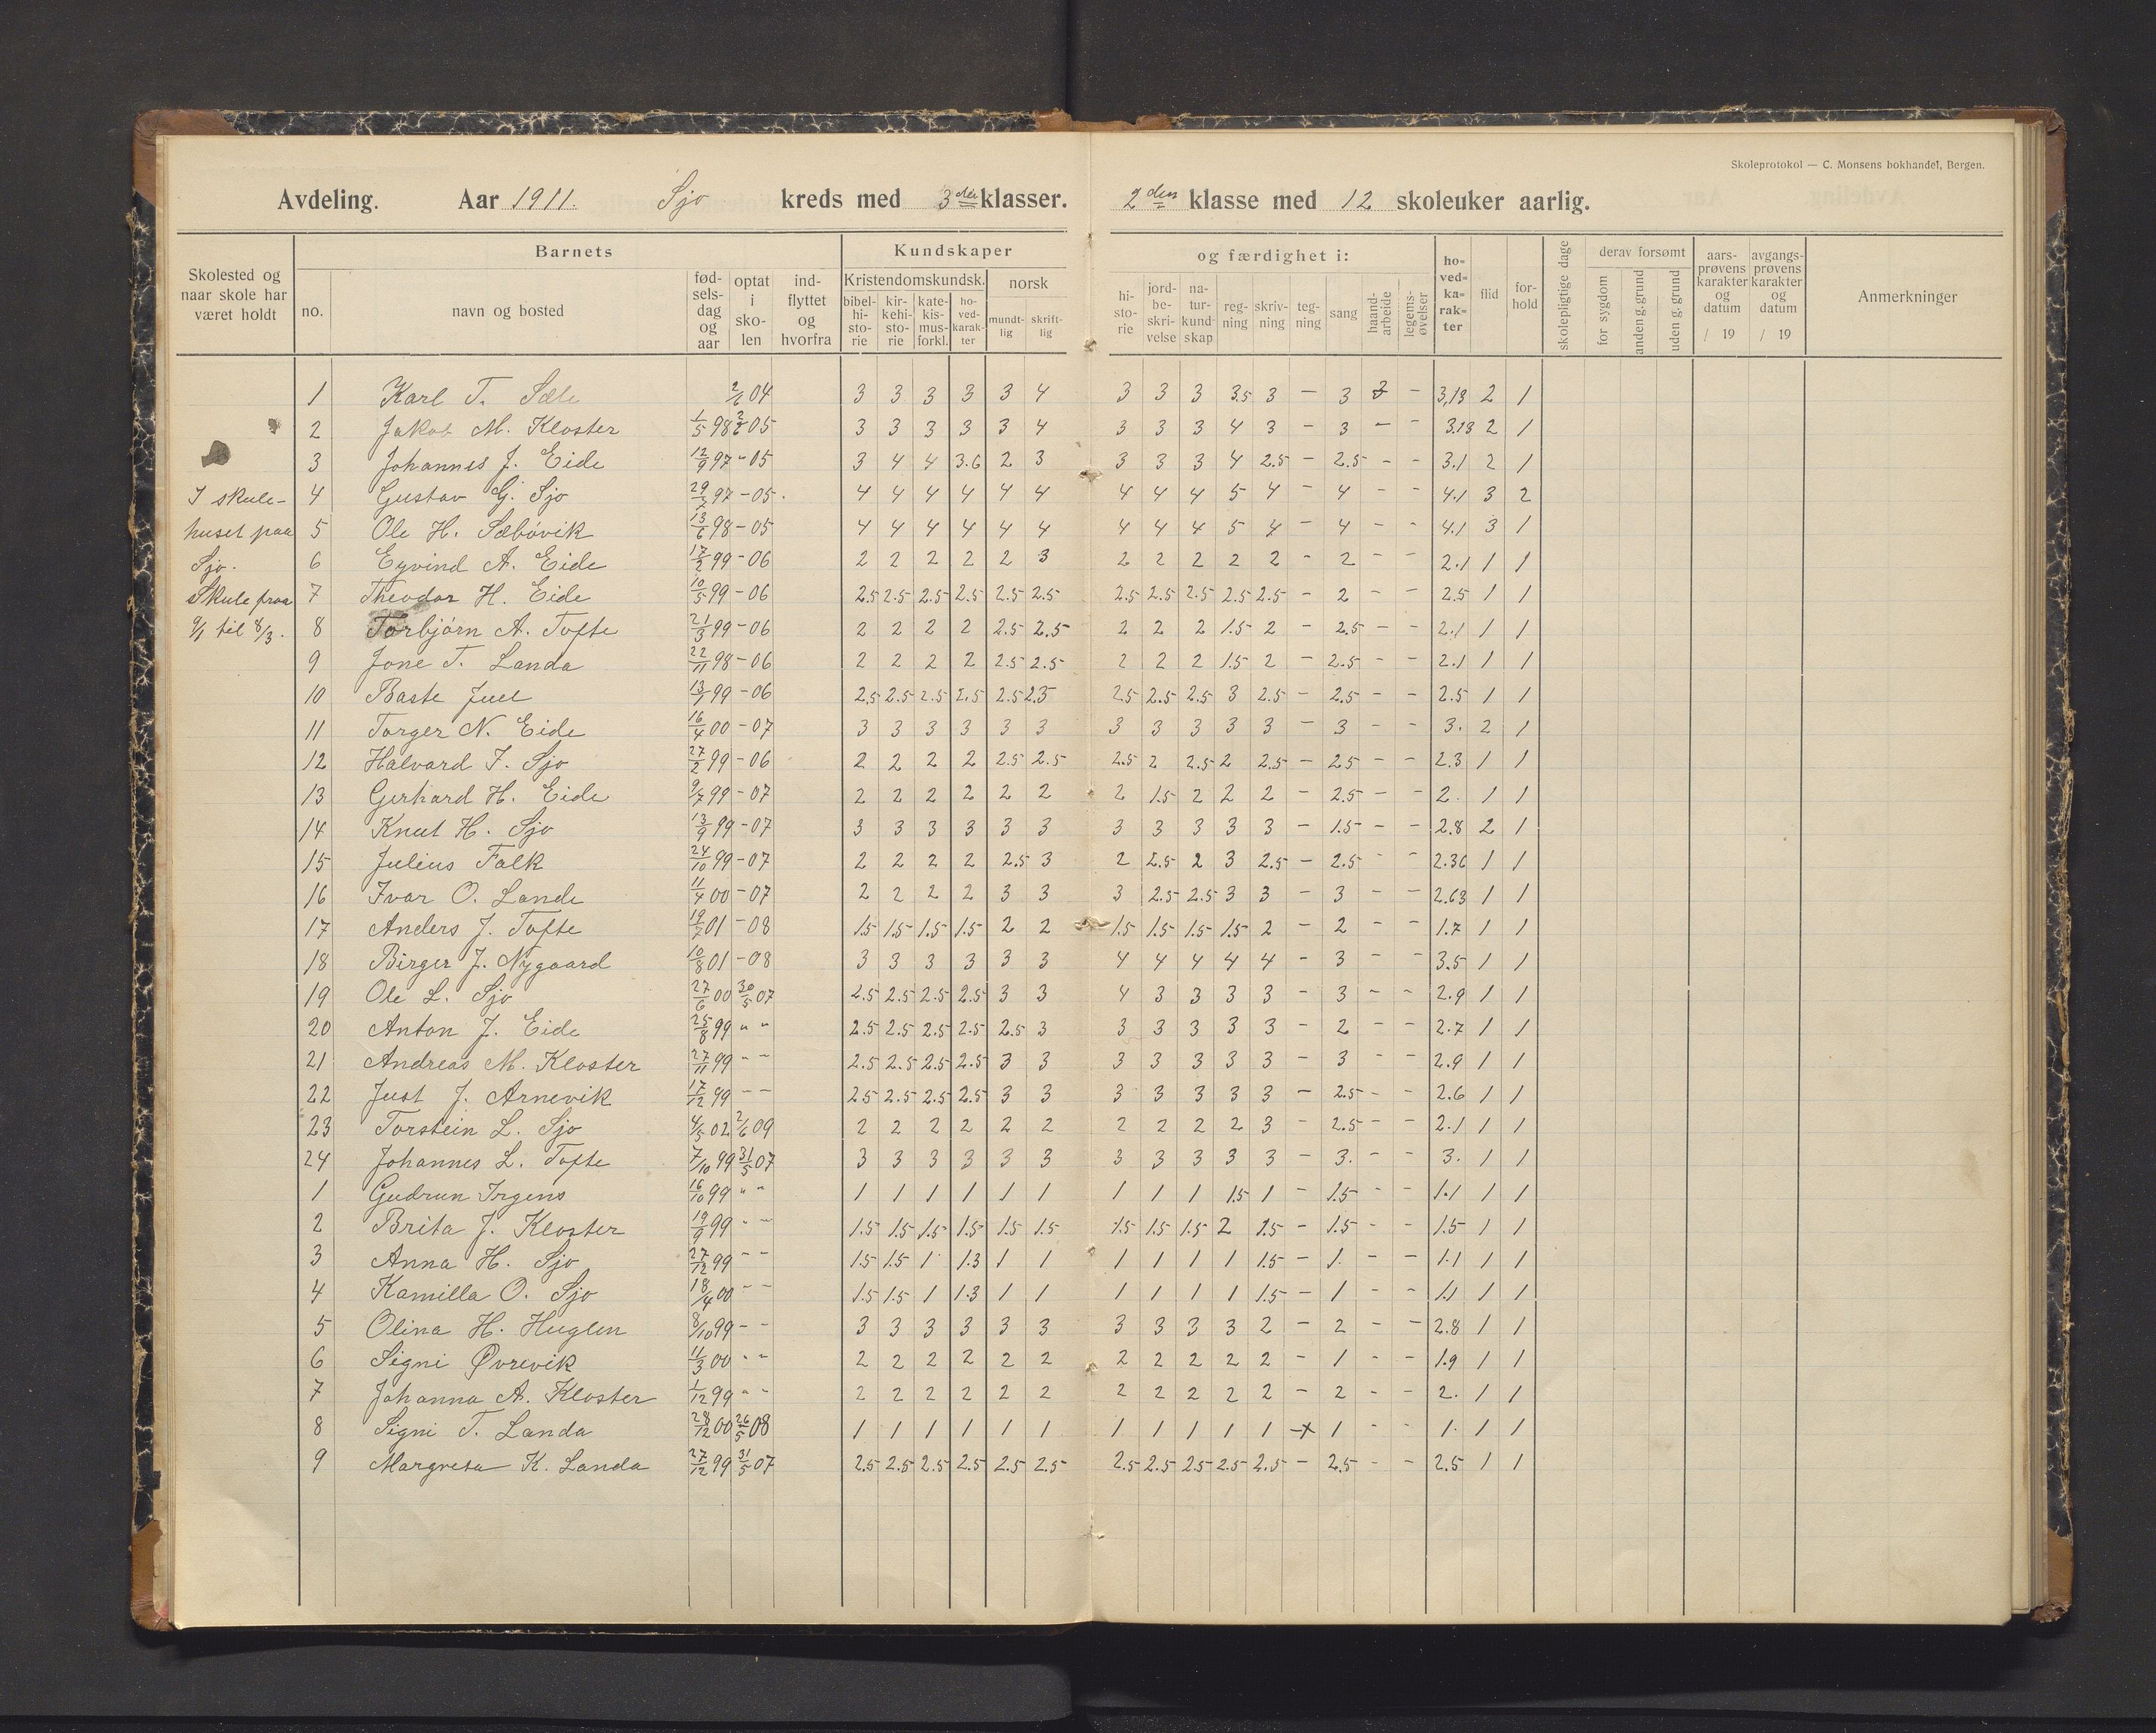 Skoleprotokol — C. Monsens bokhandel, Bergen.
Avdeling. Aar 1911. Sjo kreds med 3 klasser. 2den klasse med 12 skoleuker aarlig.
Skolested og naar skole har været holdt
Barnets
no.
navn og bosted
fød-sels-dag og aar
optat i sko-len
ind-flyttet og hvorfra
Kundskaper
Kristendomskundsk.
bibel-hi-sto-rie
kir-kehi-sto-rie
kate-kis-mus-forkl.
ho-ved-karak-ter
norsk
mundt-lig
skrift-lig
og færdighet i:
hi-sto-rie
jord-be-skri-velse
na-tur-kund-skap
reg-ning
skriv-ning
teg-ning
sang
haand-arbeide
legems-øvelser
ho-ved-ka-rak-ter
flid
for-hold
skolepligtige dage
derav forsømt
for sygdom
anden g. grund
uden g. grund
aars-prøvens karakter og datum / 19
avgangs-prøvens karakter og datum / 19
Anmerkninger
I skule-
huset paa
Sjo.
Skule fraa
9/1 til 8/3.
1 Karl T. Sæle 2/6 04 3 3 3 3 3 4 3 3 3 3.5 3 - 3 - 3,13 2 1
2 Jakob M. Kloster 1/5 98 05 3 3 3 3 3 4 3 3 3 4 3 - 3 - - 3.13 2 1
3 Johannes J. Eide 12/9 97 - 05 3 4 4 3.6 2 3 3 3 3 4 2.5 - 2.5 - - 3.1 2 1
4 Gustav G. Sjo 97 - 05. 4 4 4 4 4 4 4 4 4 5 4 - 4 - - 4.1 3 2
5 Ole H. Sæbövik 13/6 98 - 05 4 4 4 4 4 4 4 4 4 5 4 - 4 - - 4.1 3 1
6 Eyvind A. Eide 17/2 99 - 06 2 2 2 2 2 3 2 2 2 2 2 - 2 - - 2.1 1 1
7 Theodor H. Eide 10/5 99 - 06 2.5 2.5 2.5 2.5 2.5 2.5 2.5 2.5 2.5 2.5 2.5 - 2 - - 2.5 1 1
8 Torbjörn A. Tofte 21/3 99 - 06 2 2 2 2 2.5 2.5 2 2 2 1.5 2 - 2.5 - - 2.1 1 1
9 Jone T. Landa 22/11 98 - 06 2 2 2 2 2.5 2.5 2 2 2 1.5 2 - 2.5 - - 2.1 1 1
10 Baste Juel 99 - 06 2.5 2.5 2.5 2.5 2.5 2.5 2.5 2.5 2.5 3 2.5 - 2.5 - - 2.5 1 1
11 Torger N. Eide 16/4 00 - 07 3 3 3 3 3 3 3 3 3 3 3 - 3 - - 3. 2 1
12 Halvard J. Sjo 27/2 99 - 06 2 2 2 2 2.5 2.5 2.5 2 2.5 2 2.5 - 2.5 - - 2.3 1 1
13 Gerhard H. Eide 9/7 99 - 07 2 2 2 2 2 2 2 1.5 2 2 2 - 2.5 - - 2. 1 1
14 Knut H. Sjo 13/9 99 - 07 3 3 3 3 3 3 3 3 3 3 3 - 1.5 - - 2.8 2 1
15 Julius Falk 24/10 99 - 07 2 2 2 2 2.5 3 2 2.5 2 3 2.5 - 2.5 - - 2.36 1 1
16 Ivar O. Lande 11/4 00 - 07 2 2 2 2 3 3 3 2.5 2.5 3 3 - 3 - - 2.63 1 1
17 Anders J. Tofte 19/7 01 - 08 1.5 1.5 1.5 1.5 2 2 1.5 1.5 1.5 1.5 2 - 2 - - 1.7 1 1
18 Birger J. Nygaard 10/8 01 - 08 3 3 3 3 3 3 4 4 4 4 4 - 3 - - 3.5 1 1
19 Ole L. Sjo 27/6 00 30/5 07 2.5 2.5 2.5 2.5 3 3 4 3 3 3 3 - 3 - - 2.9 1 1
20 Anton J. Eide 25/8 99 " " 2.5 2.5 2.5 2.5 2.5 3 3 3 3 3 3 - 2 - - 2.7 1 1
21 Andreas M. Kloster 27/11 99 " " 2.5 2.5 2.5 2.5 3 3 3 3 3 3 3 - 3 - - 2.9 1 1
22 Just J. Arnevik 17/12 99 - - 2.5 2.5 2.5 2.5 3 3 3 3 3 3 3 - 2.5 - - 2.6 1 1
23 Torstein L. Sjo 4/5 02 2/6 09 2 2 2 2 2 2 2 2 2 2 3 - 2.5 - - 2.1 1 1
24 Johannes L. Tofte 7/10 99 31/5 07 3 3 3 3 3 3 3 3 3 3 3 - 3. - - 3. 1 1
1 Gudrun Irgens 16/10 99 " " 1 1 1 1 1 1 1 1 1 1.5 1 - 1.5 - - 1.1 1 1
2 Brita J. Kloster 19/9 99 - - 1.5 1.5 1.5 1.5 1.5 1.5 1.5 1.5 1.5 2 1.5 - 1.5 - - 1.5 1 1
3 Anna H. Sjo 27/12 99 - - 1.5 1.5 1 1.3 1 1 1 1 1 1 1.5 - 1. - - 1.1 1 1
4 Kamilla O. Sjo 18/4 00 - - 1.5 1.5 1 1.3 1 1 1 1 1 1 1.5 - 1 - - 1.1 1 1
5 Olina H. Huglen 8/10 99 - - 3 3 3 3 3 3 3 3 3 3 2 - 2 - - 2.8 1 1
6 Signi Øvrevik 11/3 00 " " 2 2 2 2 2 2 2 2 2 2 2 - 1 - - 1.9 1 1
7 Johanna A. Kloster 1/12 99 " " 2 2 2 2 2 2 2 2 2 2 2 - 2 - - 2. 1 1
8 Signi T. Landa 28/12 00 26/5 08 1 1 1 1 1 1 1 1 1 1 1 - 1 - - 1. 1 1
9 Margreta K. Landa 27/12 99 31/5 07 2.5 2.5 2.5 2.5 2.5 2.5 2.5 2.5 2.5 2.5 2.5 - 2.5 - - 2.5 1 1